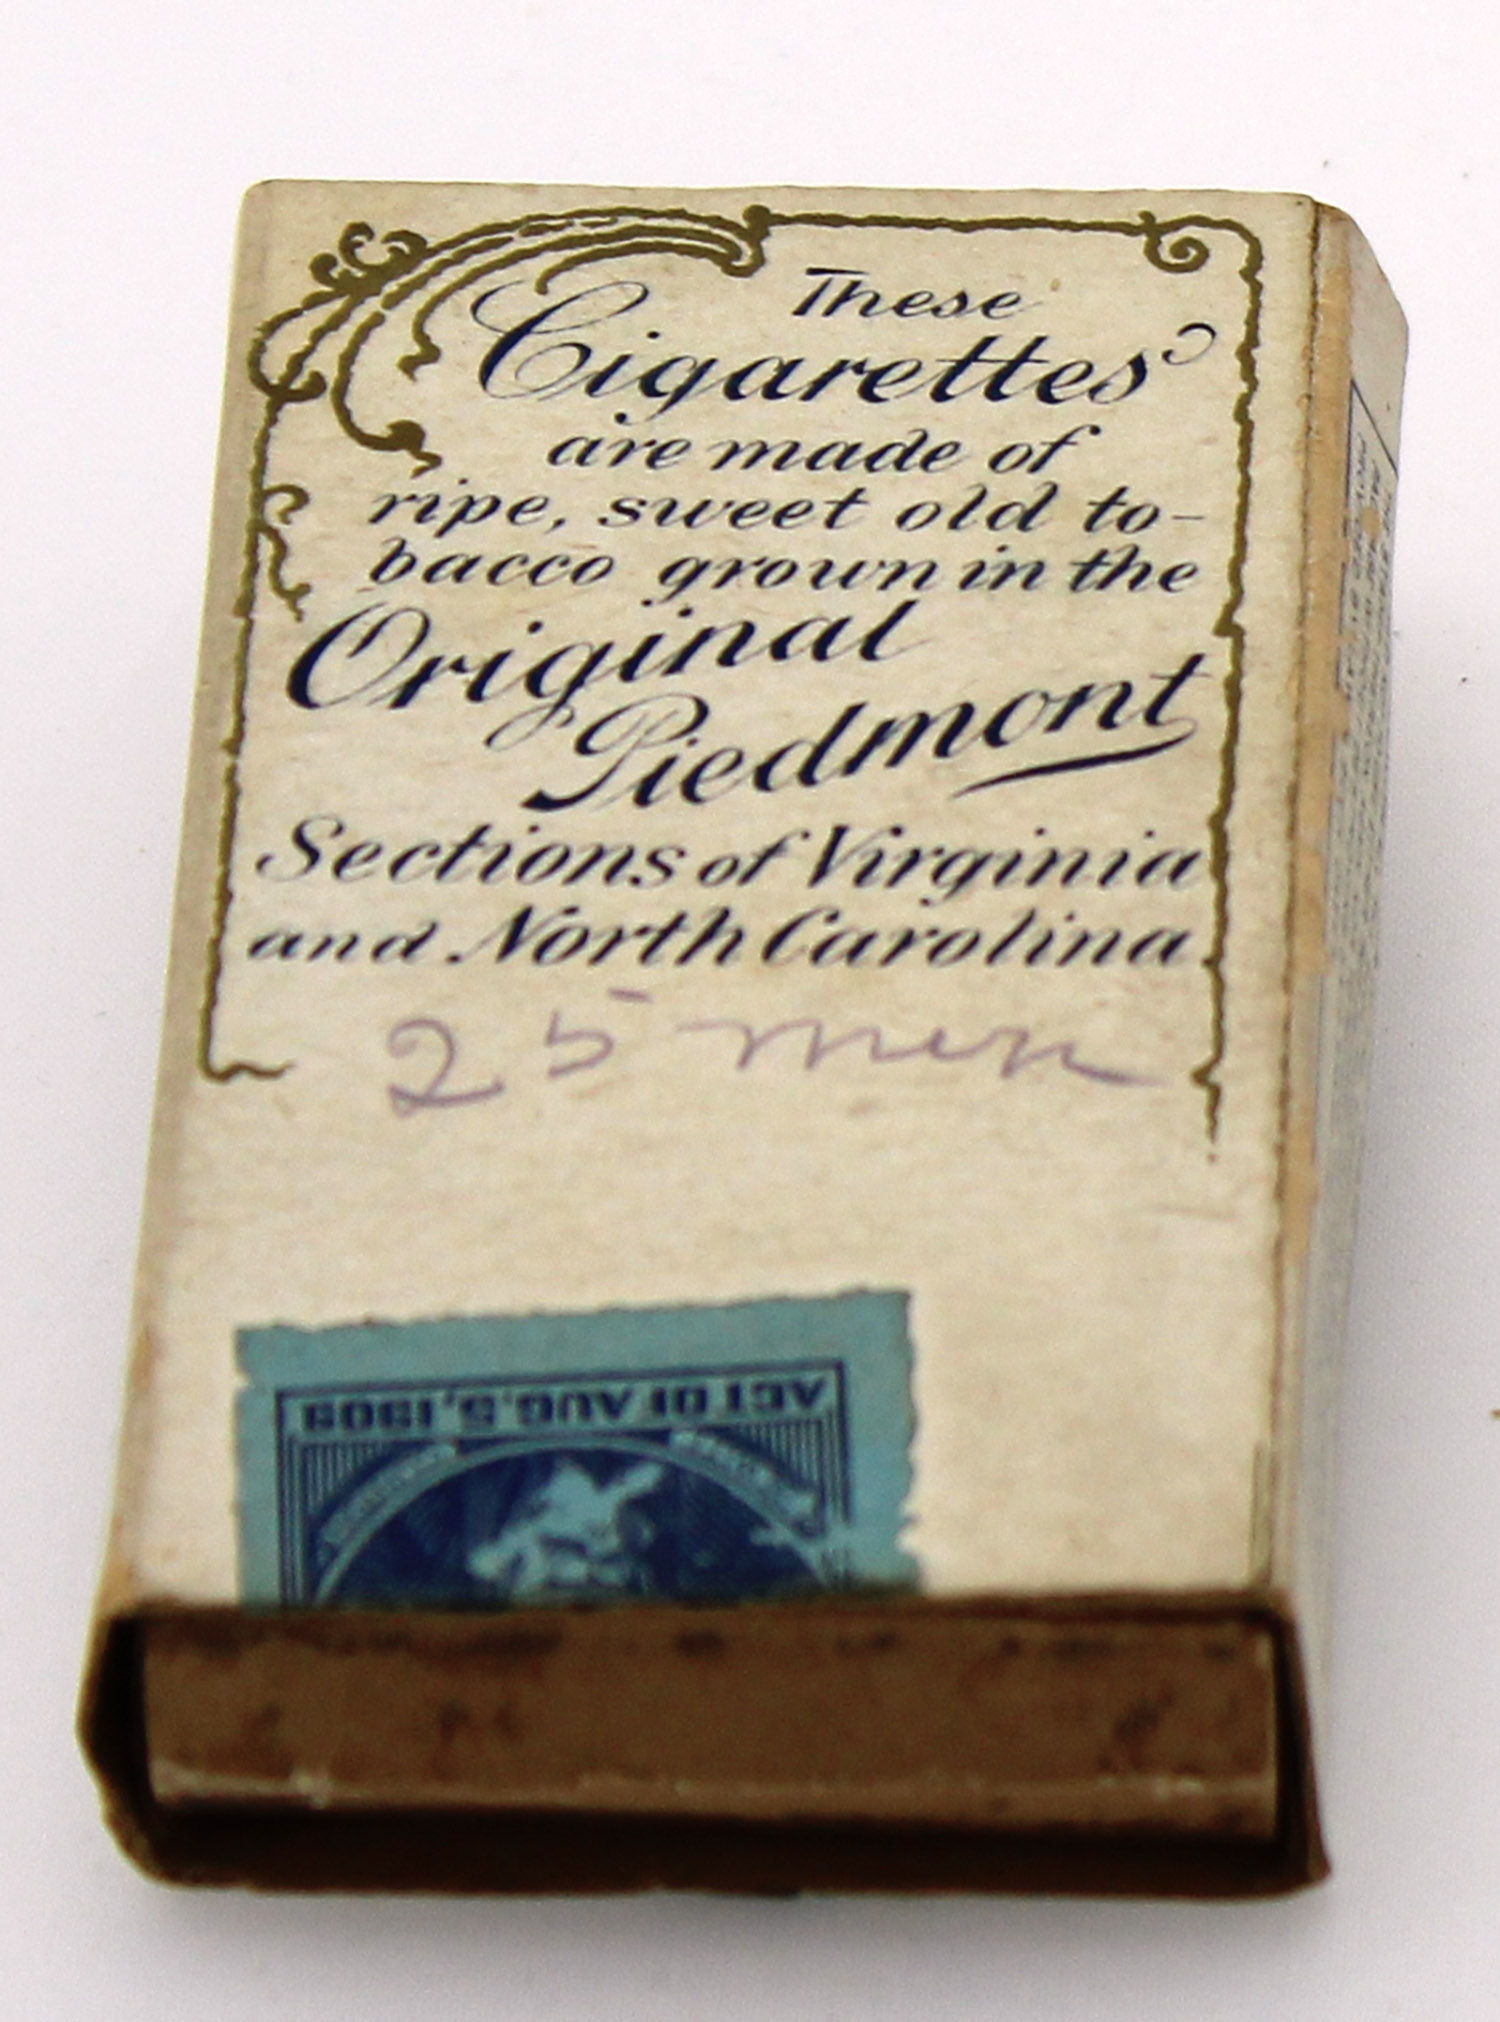 These
Cigarettes
are made of
ripe, sweet old to-
bacco grown in the
Original
Piedmont
Sections of Virginia
and North Carolina
25 men
ACT OF AUG. 5, 1909